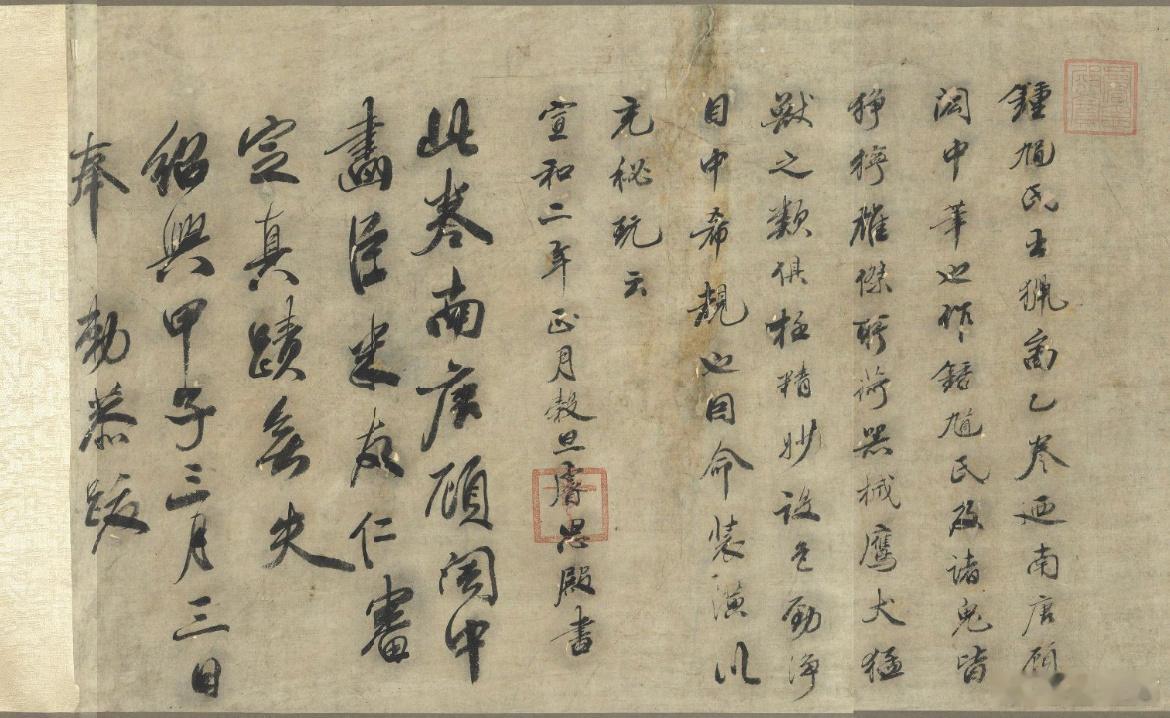 鍾馗氏出獵啚乙卷迺南唐顧
閎中筆也作鍾馗氏及諸鬼皆
猙獰雄傑所荷器械鷹犬猛
獸之類俱極精妙設色勁淨
目中希覯也因命裝潢以
充秘玩云
宣和二年正月穀旦睿思殿書
此卷南唐顧閎中
畫臣米友仁審
定真蹟無失
紹興甲子三月三日
奉 勅恭跋